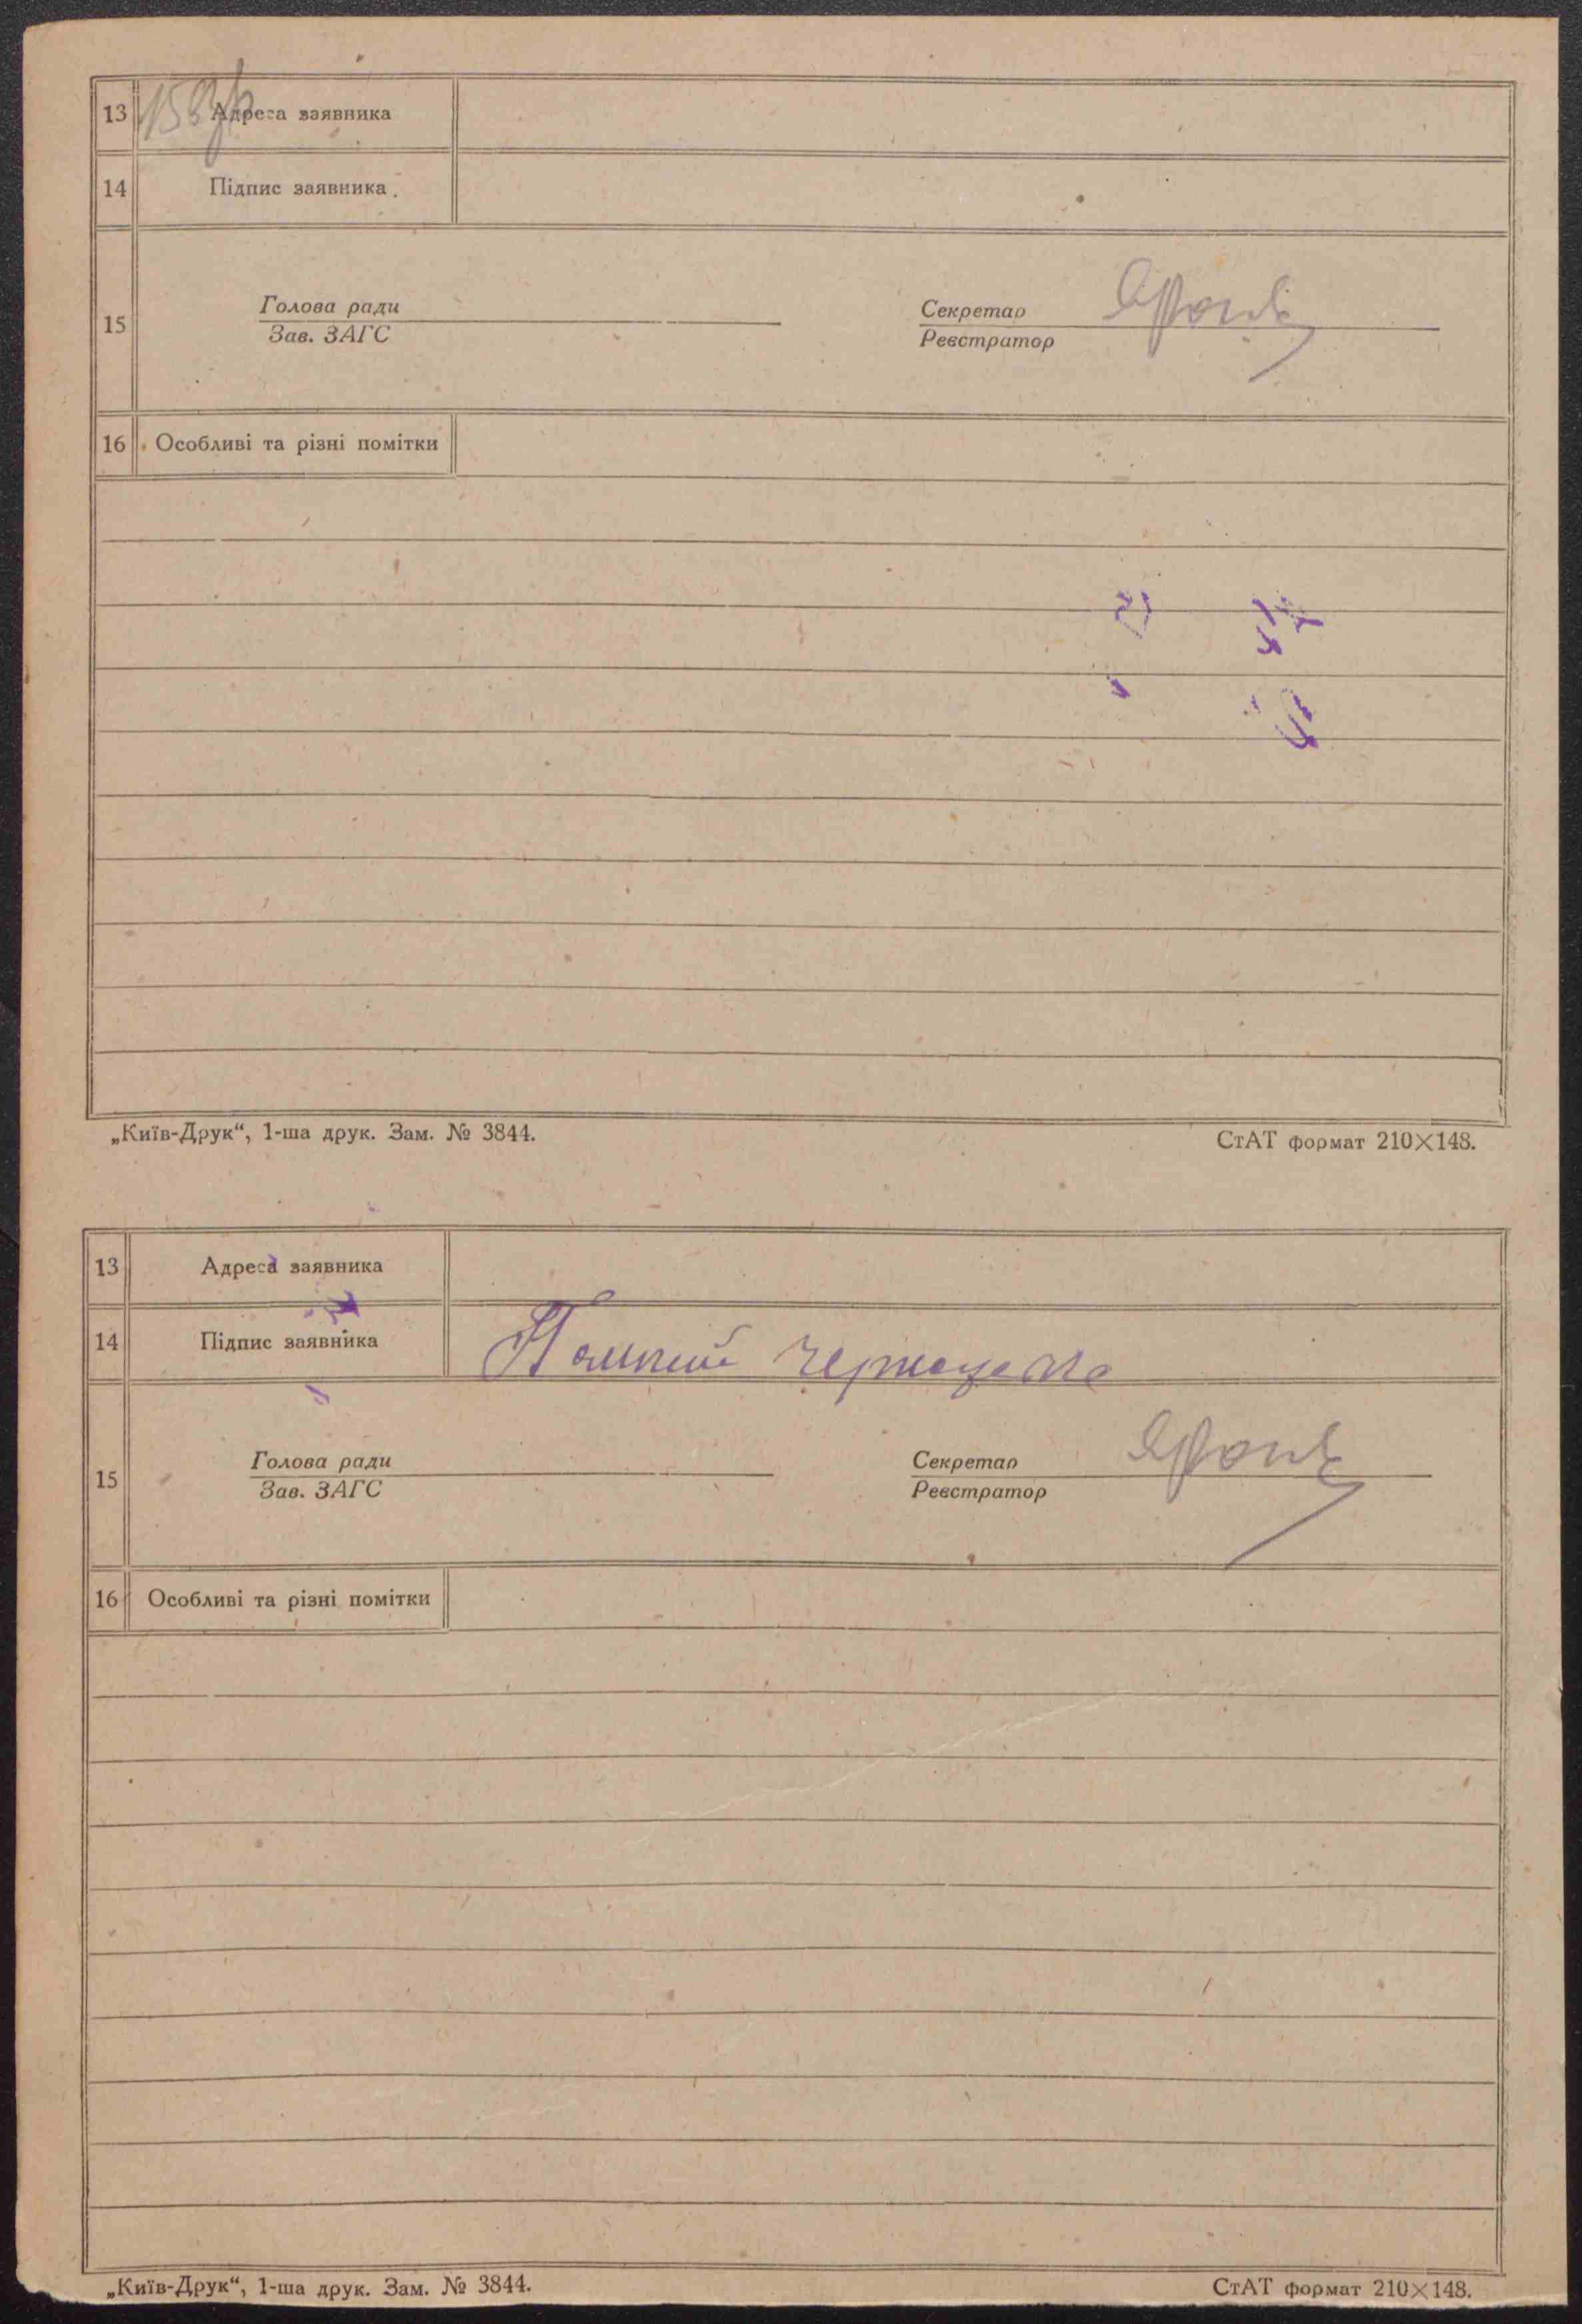 13 Адреса заявника
14 Підпис заявника
Голова ради Секретар
15
Зав. ЗАГС Реєстратор
16 Особливі та різні помітки
„Київ-Друк“, 1-ша друк. Зам. № 3844. СтАТ формат 210×148.
13 Адреса заявника
14 Підпис заявника
Голова ради Секретар
15
Зав. ЗАГС Реєстратор
16 Особливі та різні помітки
„Київ-Друк“, 1-ша друк. Зам. № 3844. СтАТ формат 210×148.